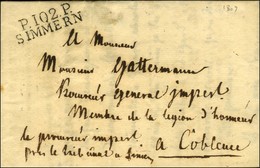 P. 102. P.
SIMMERN
A Monsieur
Monsieur Gattermann
Procureur general imperl
Membre de la legion d'honneur
le procureur imperl
a Coblence
près le tribunal a Simmern